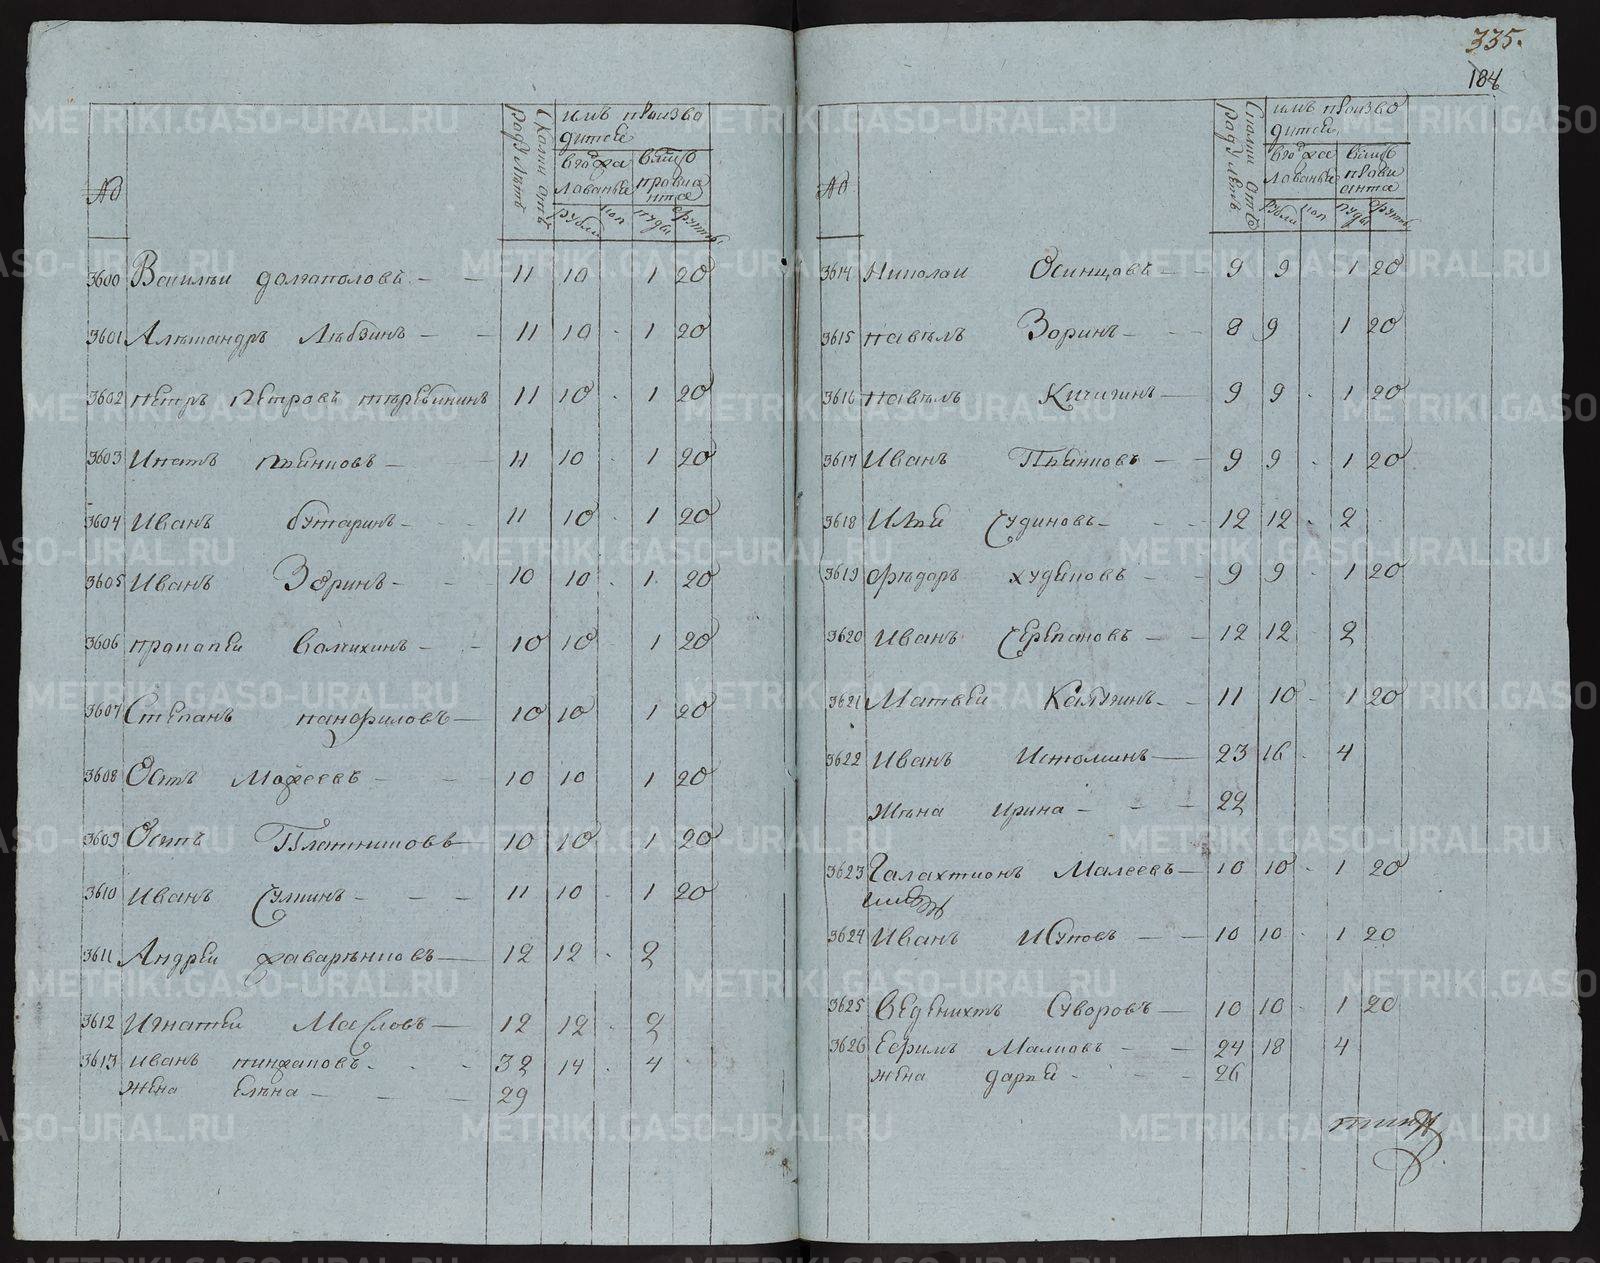 335.
184
№
Сколки отъ роду летъ
имъ произво
дитсѧ
в год жа
лованьѧ
в мѣсѧ
провиа
нта
рубли
коп
пуды
фунты
3600 Василеи Долгаполовъ 11 10 1 20
3601 Алѣѯандръ Лѣбзинъ 11 10 - 1 20
3602 Петръ Петровъ 11 10 - 1 20
3603 Игнатъ Пьянковъ 11 10 - 1 20
3604 Иванъ Бутаринъ 11 10 - 1 20
3605 Иванъ Зоринъ 10 10 - 1 20
3606 Прокопеи Волчихинъ 10 10 1 20
3607 Степанъ Панфиловъ 10 10 1 20
3608 Осипъ 10 10 1 20
3609 Осипъ Платниковъ 10 10 1 20
3610 Иванъ Сулинъ 11 10 - 1 20
3611 Андреи Жаваренковъ 12 12 - 2
3612 Игнатеи Масловъ 12 12 - 2
3613 Иванъ Пинжаковъ 32 14 - 4
жена Елена 29
№
Сколки отъ роду летъ
имъ произво
дитсѧ
в год жа
лованьѧ
в мѣсѧ
прови
анта
рубли
коп
пуды
фунты
3614 Николаи Осинцовъ 9 9 1 20
3615 Павелъ Зоринъ 8 9 1 20
3616 Павелъ Кичигинъ 9 9 - 1 20
3617 Иванъ Пьянковъ 9 9 - 1 20
3618 Илья Судиновъ 12 12 - 2
3619 Федоръ Худяковъ 9 9 - 1 20
3620 Иванъ Черепановъ 12 12 - 2
3621 Матвеи Калугинъ 11 10 - 1 20
3622 Иванъ Истоминъ 23 16 - 4
жена Ирина 22
3623 Галахтионъ Малеевъ 10 10 - 1 20
3624 Иванъ Исуповъ 10 10 - 1 20
3625 Веденихтъ Суворовъ 10 10 - 1 20
3626 Ефимъ Малковъ 24 18 4
жена Дарья 26
METRIKI.GASO-URAL.RU